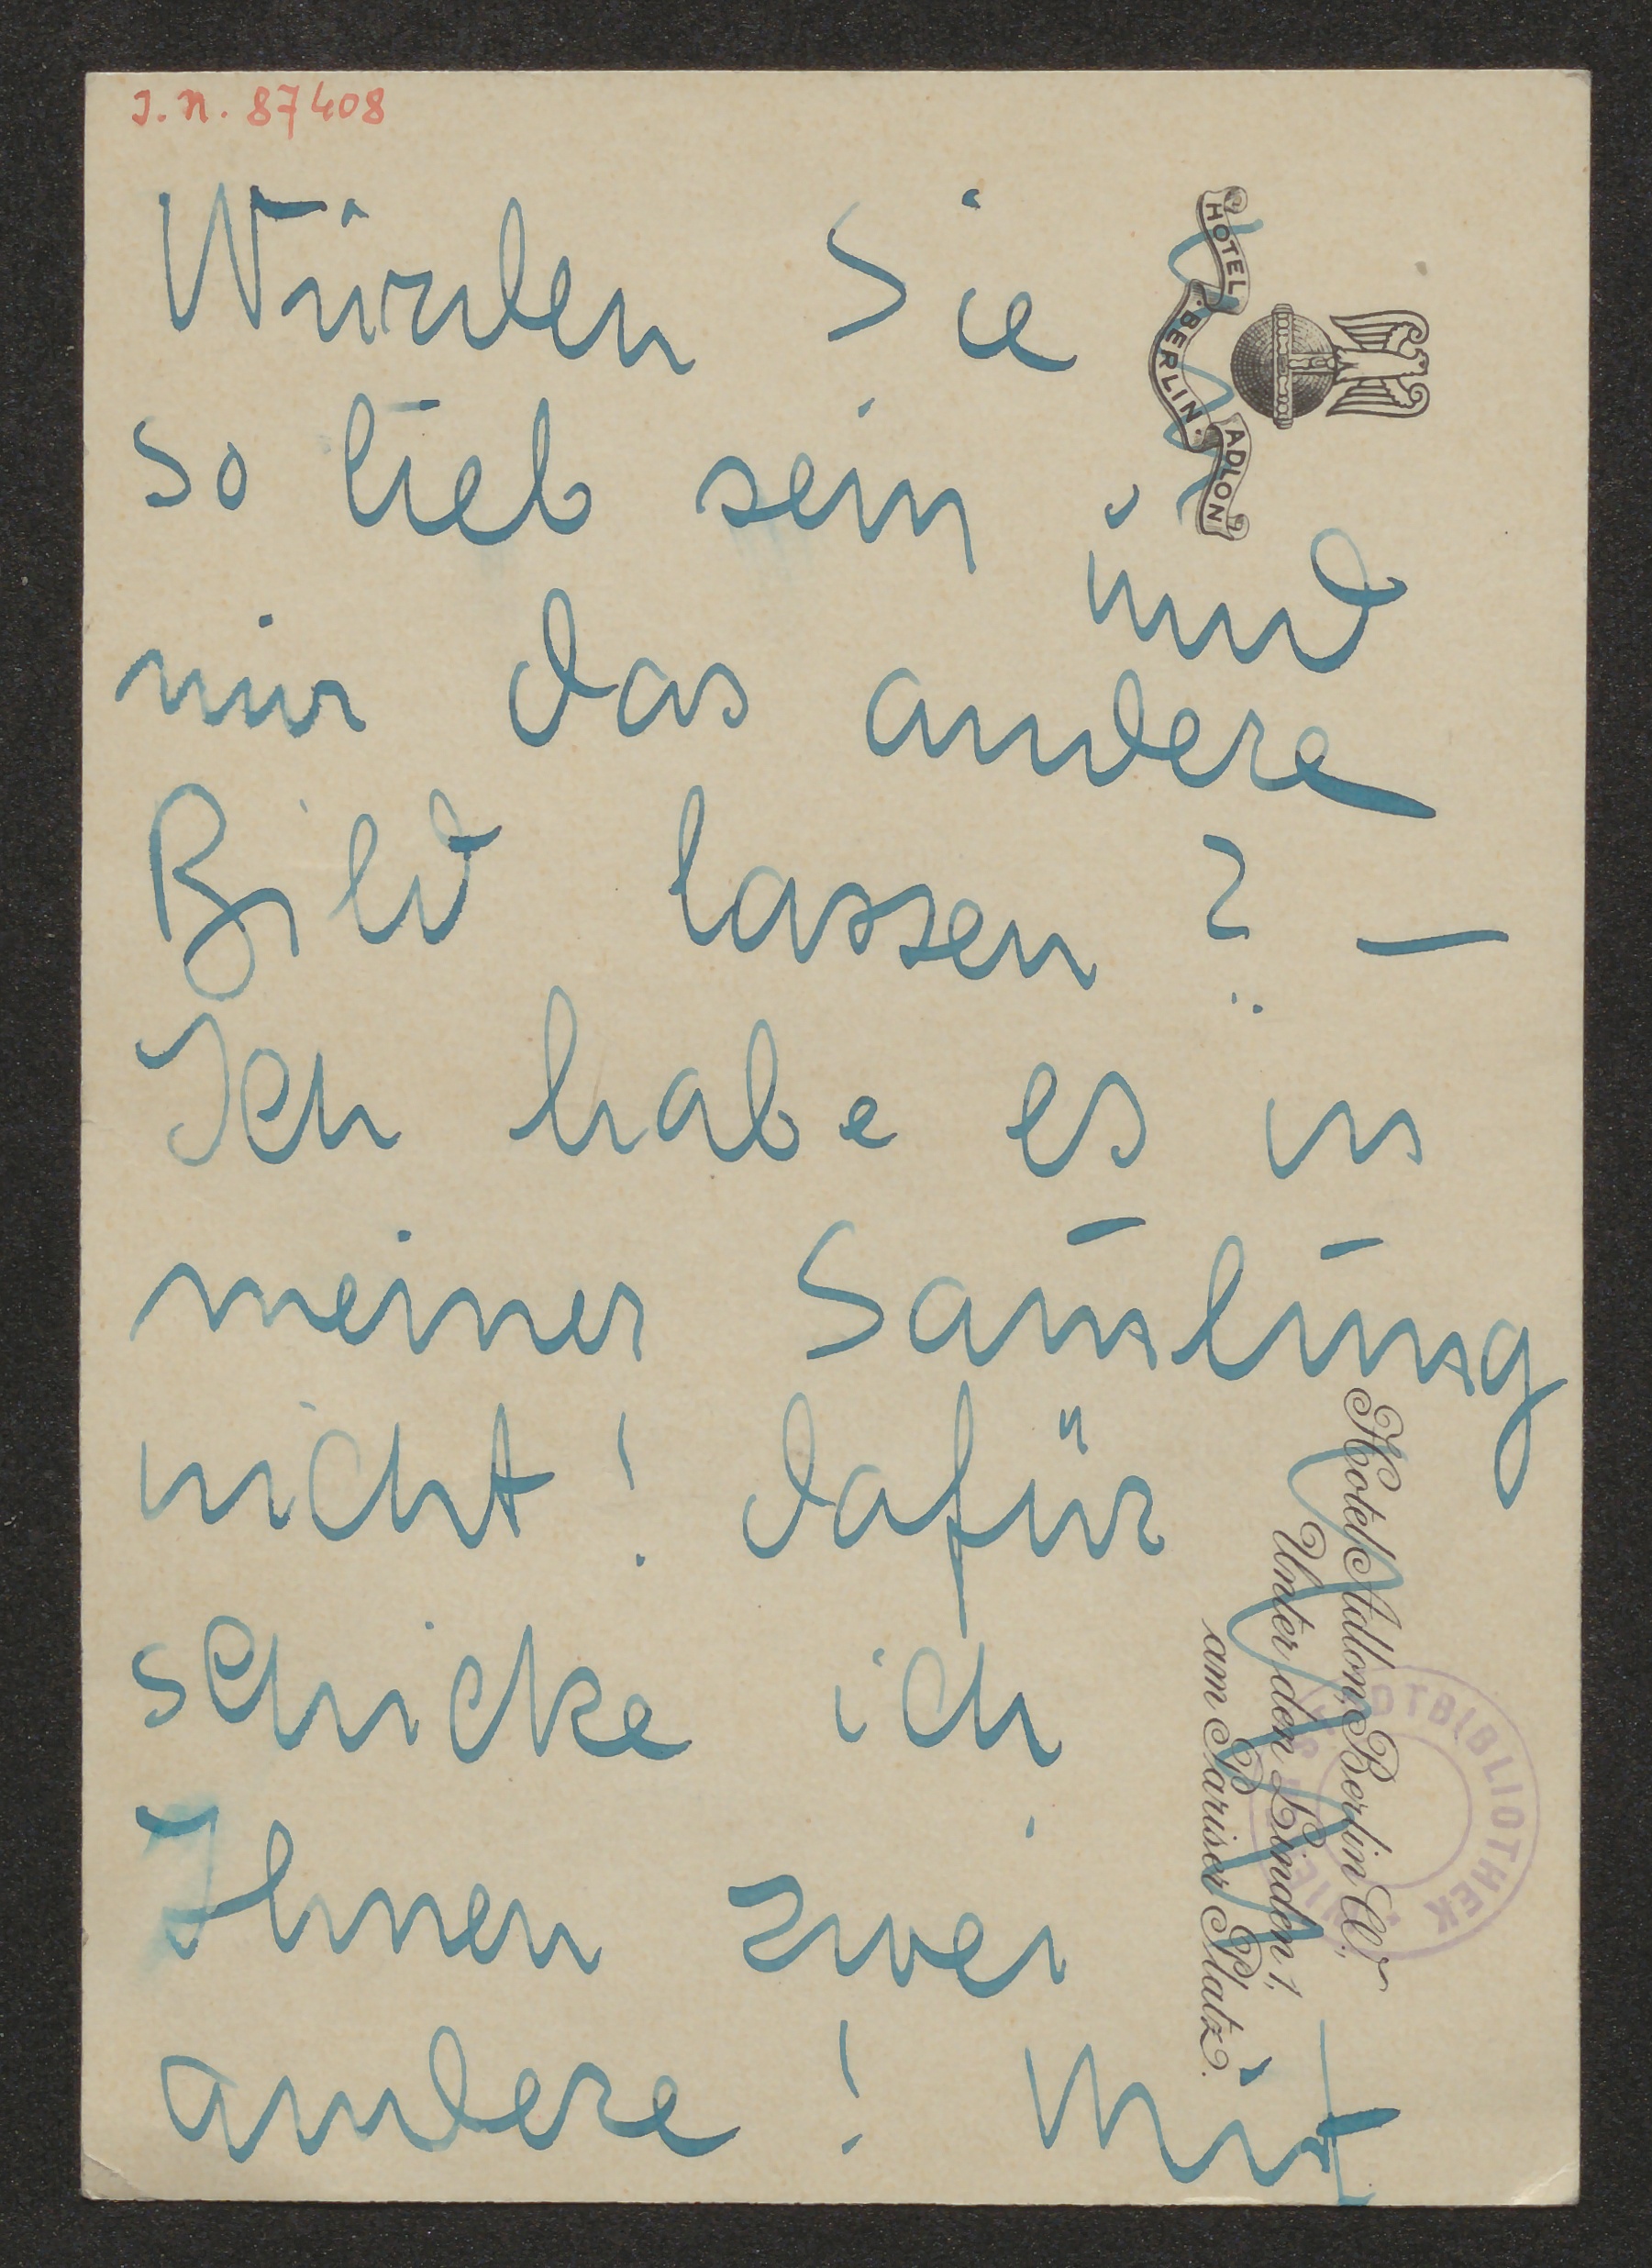 J.N. 87408
Würden Sie
so lieb sein und
mir das andere
Bild lassen? —
Ich habe es in
meiner Sam̅lung
nicht! dafür
schicke ich
Ihnen zwei
andere! Mit
HOTEL · BERLIN · ADLON
Hotel Adlon, Berlin W.,
Unter den Linden 1,
am Pariser Platz.
STADTBIBLIOTHEK
WIEN